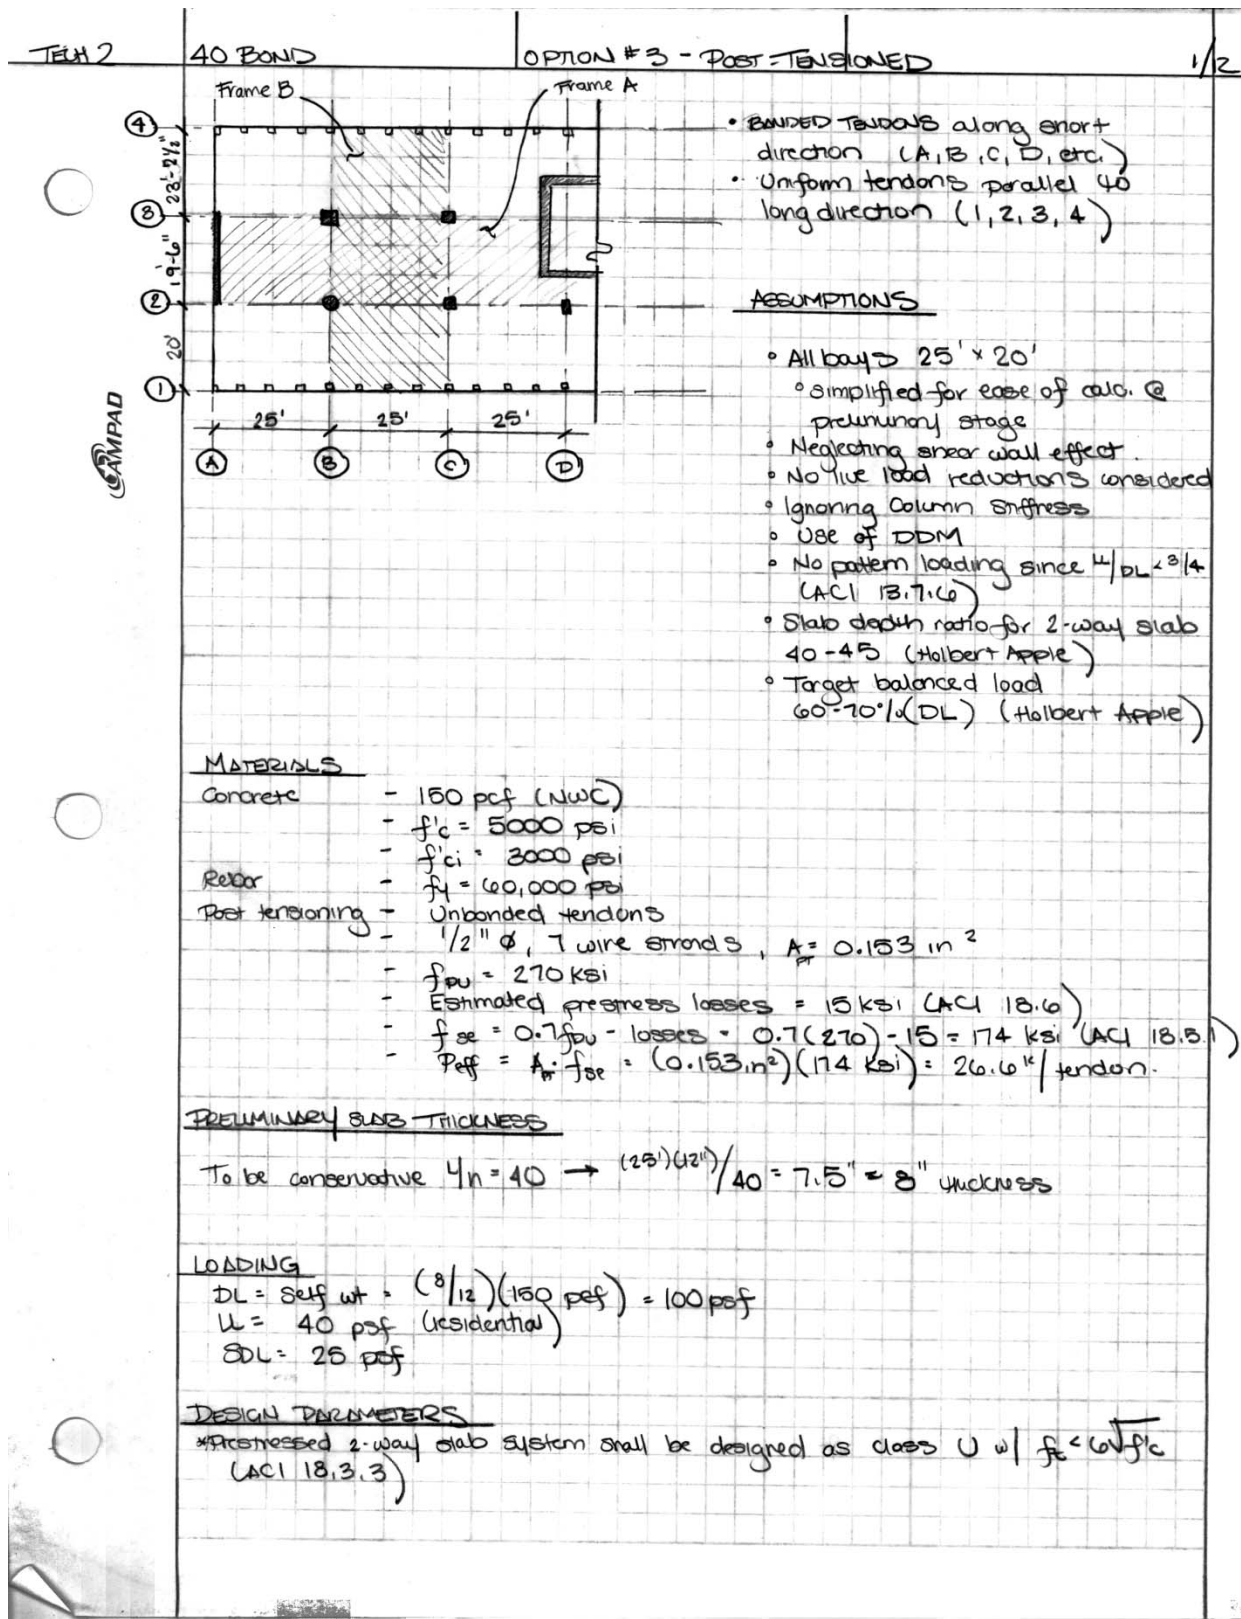 TECH 2
40 BOND
OPTION #3 - POST-TENSIONED
1/12
Frame B
Frame A
4
23'-2½"
3
19'-6"
2
20'
1
25'
25'
25'
A
B
C
D
CAMPAD
• BANDED TENDONS along short
direction (A, B, C, D, etc.)
• Uniform tendons parallel to
long direction (1, 2, 3, 4)
ASSUMPTIONS
• All bays 25' x 20'
• simplified for ease of calc. @
preliminary stage
• Neglecting shear wall effect.
• No live load reductions considered
• Ignoring Column Stiffness
• Use of DDM
• No pattern loading since LL/DL < 3/4
(ACI 13.7.6)
• Slab depth ratio for 2-way slab
40-45 (Holbert Apple)
• Target balanced load
60-70% (DL) (Holbert Apple)
MATERIALS
Concrete - 150 pcf (NWC)
- f'c = 5000 psi
- f'ci = 3000 psi
Rebar - fy = 60,000 psi
Post tensioning - Unbonded tendons
- 1/2" φ, 7 wire strands, Apt = 0.153 in²
- fpu = 270 ksi
- Estimated prestress losses = 15 ksi (ACI 18.6)
- fse = 0.7fpu - losses = 0.7(270) - 15 = 174 ksi (ACI 18.5.1)
- Peff = Apt · fse = (0.153 in²)(174 ksi) = 26.6ᵏ/tendon.
PRELIMINARY SLAB THICKNESS
To be conservative L/h = 40 → (25')(12")/40 = 7.5" ≈ 8" thickness
LOADING
DL = Self wt = (8/12)(150 pcf) = 100 psf
LL = 40 psf (residential)
SDL = 25 psf
DESIGN PARAMETERS
*Prestressed 2-way slab system shall be designed as class U w/ ft < 6√f'c
(ACI 18.3.3)